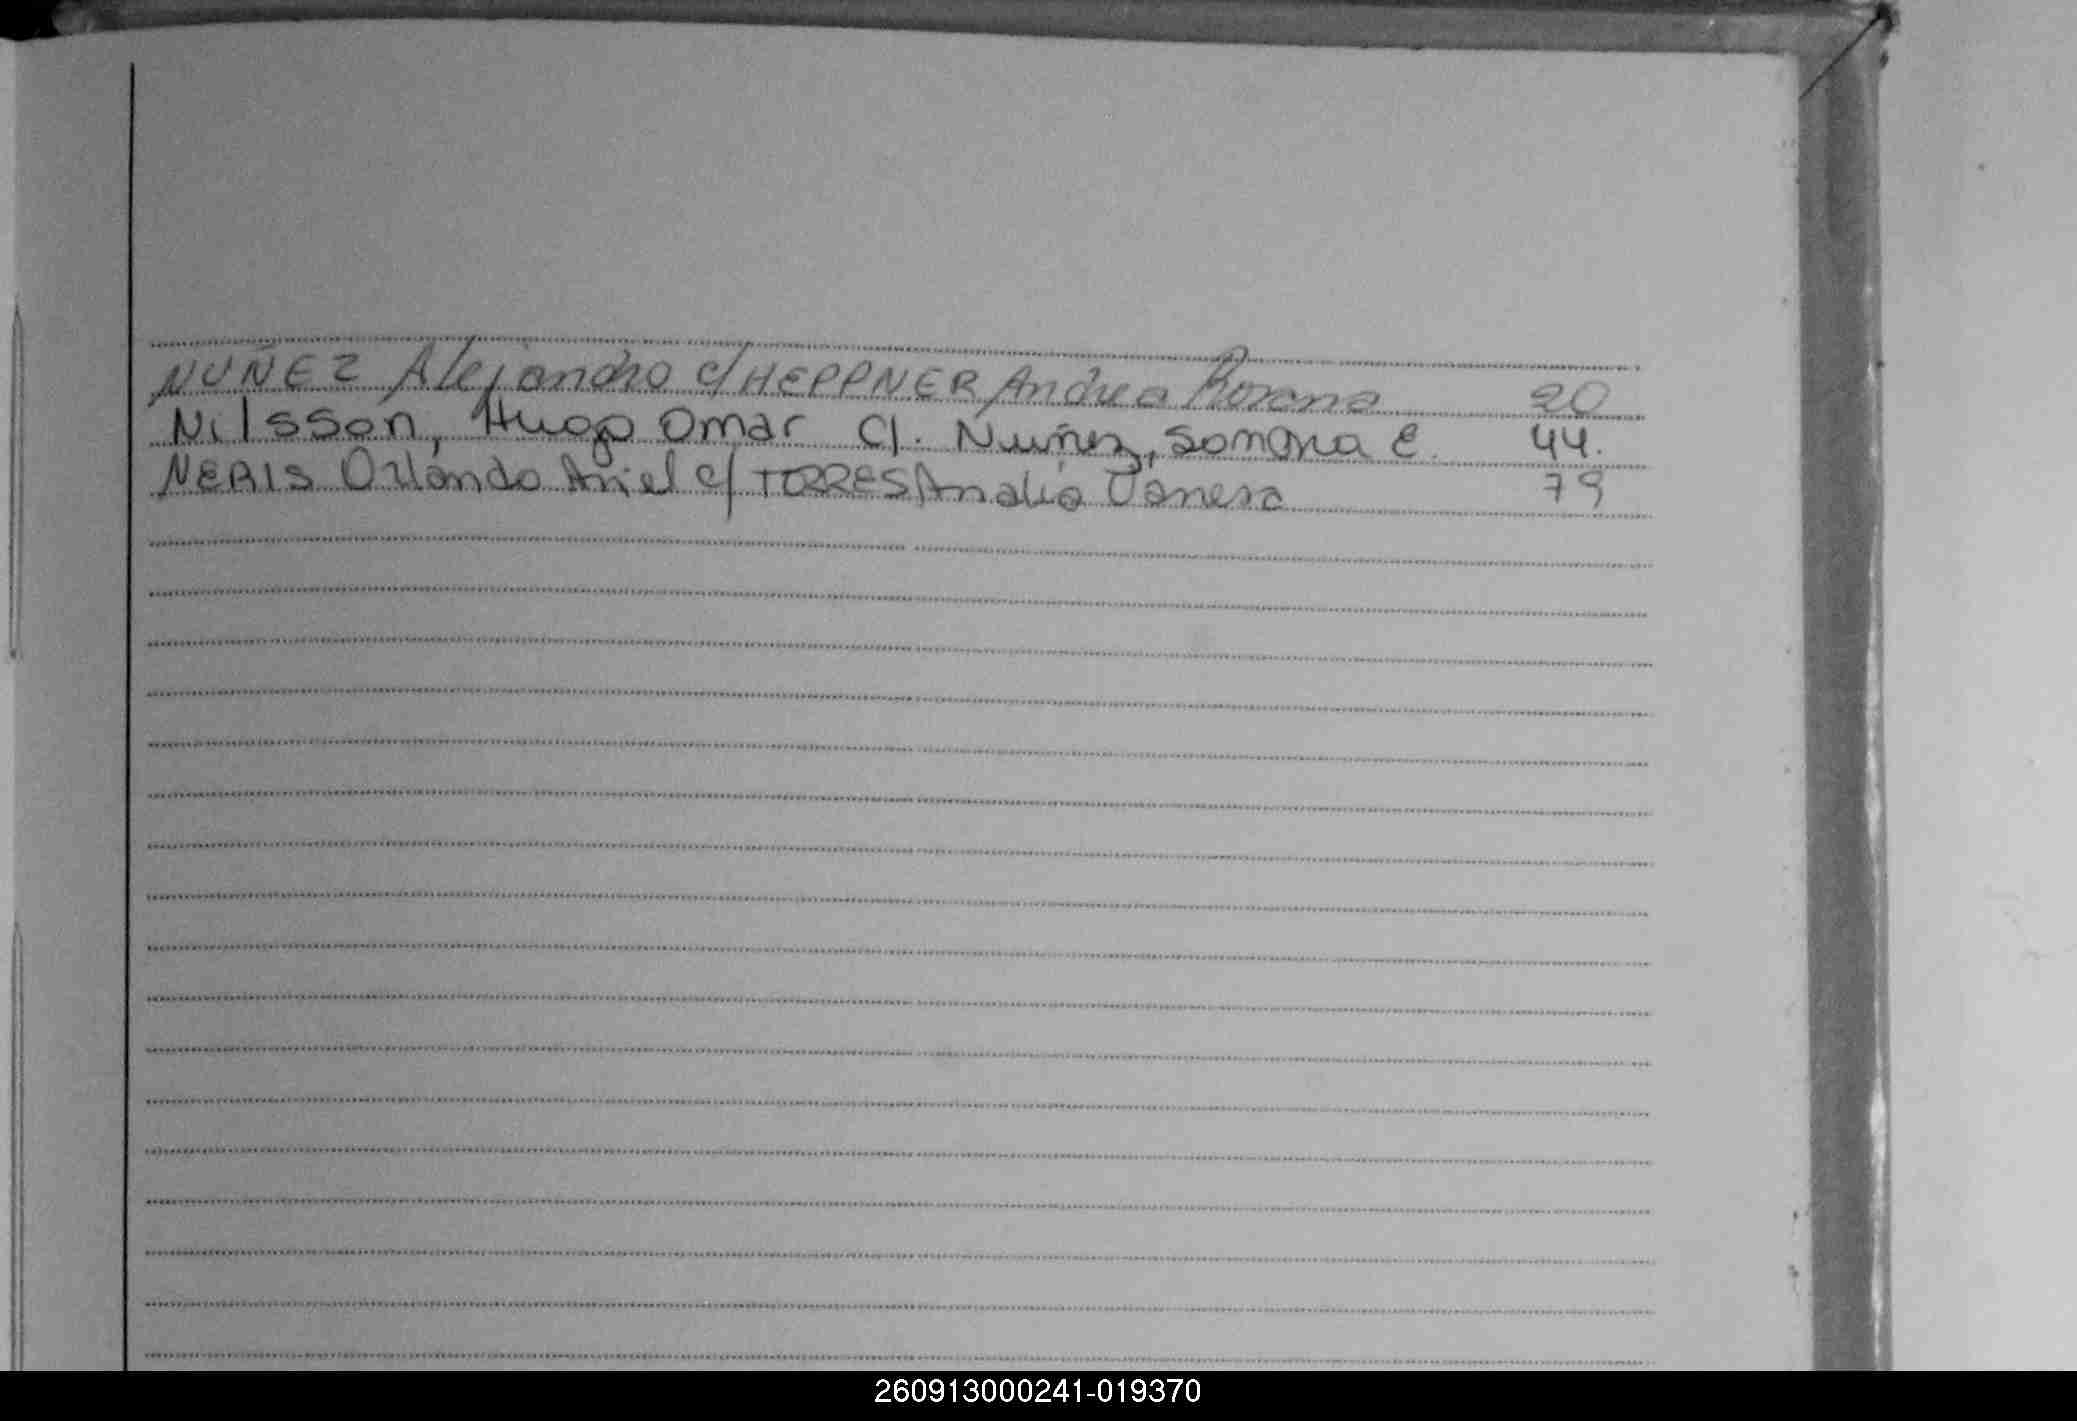 NUÑEZ Alejandro c/ HEPPNER Andrea Roxana 20
Nilsson, Hugo Omar c/. Nuñez, Sandra E. 44.
NERIS Orlando Ariel c/ TORRES Analia Vanesa 79
260913000241-019370